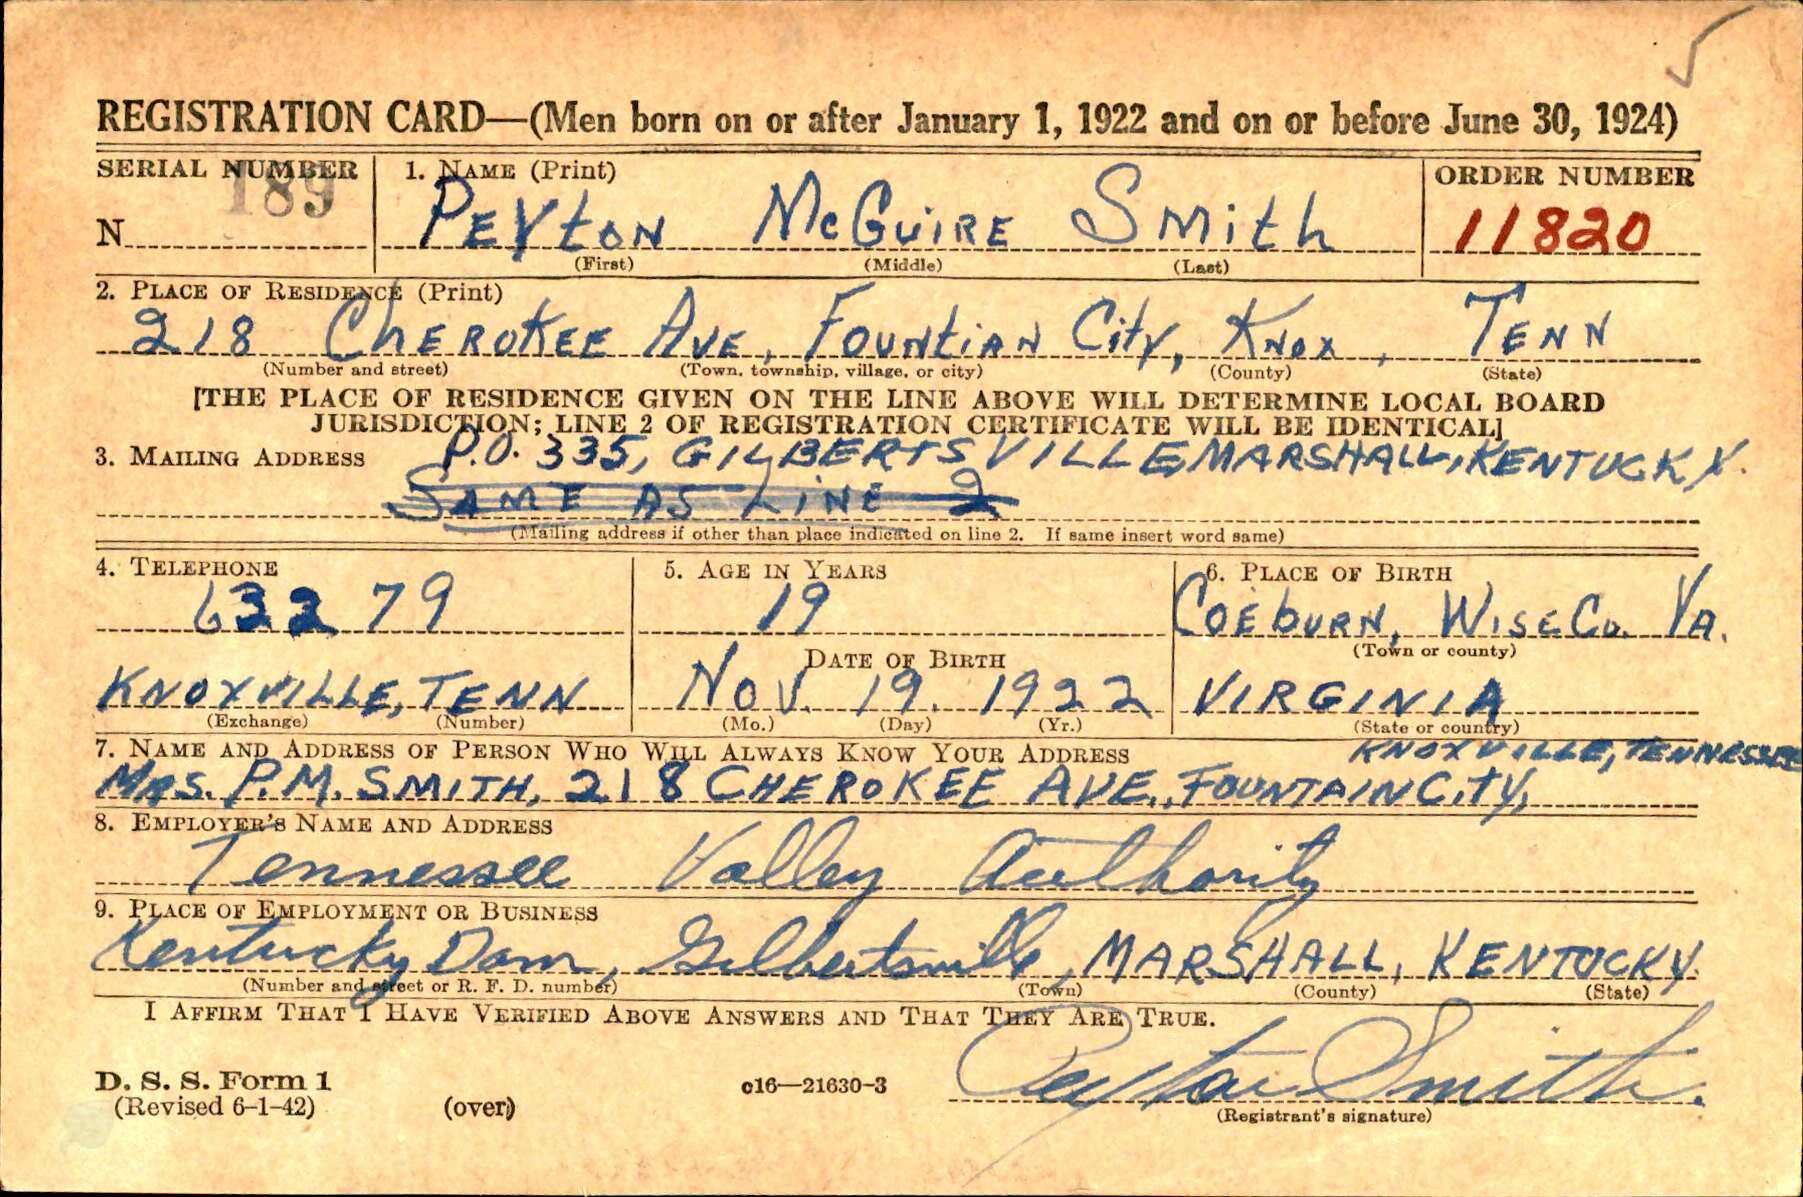 REGISTRATION CARD—(Men born on or after January 1, 1922 and on or before June 30, 1924)
SERIAL NUMBER 1. NAME (Print) ORDER NUMBER
189
N PEYtON McGUiRE SMith 11820
(First) (Middle) (Last)
2. PLACE OF RESIDENCE (Print)
218 CHEROKEE AVE, FOUNtiAN City, KNOX, TENN
(Number and street) (Town, township, village, or city) (County) (State)
[THE PLACE OF RESIDENCE GIVEN ON THE LINE ABOVE WILL DETERMINE LOCAL BOARD
JURISDICTION; LINE 2 OF REGISTRATION CERTIFICATE WILL BE IDENTICAL]
3. MAILING ADDRESS P.O. 335, GILBERTSVILLE, MARSHALL, KENTUCKY.
SAME AS LiNE 2
(Mailing address if other than place indicated on line 2. If same insert word same)
4. TELEPHONE 5. AGE IN YEARS 6. PLACE OF BIRTH
63279 19 COEbURN, WISE Co. VA.
(Town or county)
DATE OF BIRTH
KNOXVILLE, TENN NOV. 19. 1922 VIRGINIA
(Exchange) (Number) (Mo.) (Day) (Yr.) (State or country)
7. NAME AND ADDRESS OF PERSON WHO WILL ALWAYS KNOW YOUR ADDRESS KNOXVILLE, TENNESSEE
MRS. P.M. SMITH, 218 CHEROKEE AVE., FOUNTAIN CiTY,
8. EMPLOYER'S NAME AND ADDRESS
Tennessee Valley Authority
9. PLACE OF EMPLOYMENT OR BUSINESS
Kentucky Dam, Gilbertsville, MARSHALL, KENTUCKY.
(Number and street or R. F. D. number) (Town) (County) (State)
I AFFIRM THAT I HAVE VERIFIED ABOVE ANSWERS AND THAT THEY ARE TRUE.
D. S. S. Form 1
(Revised 6-1-42) (over) c16—21630-3 Peyton Smith.
(Registrant's signature)